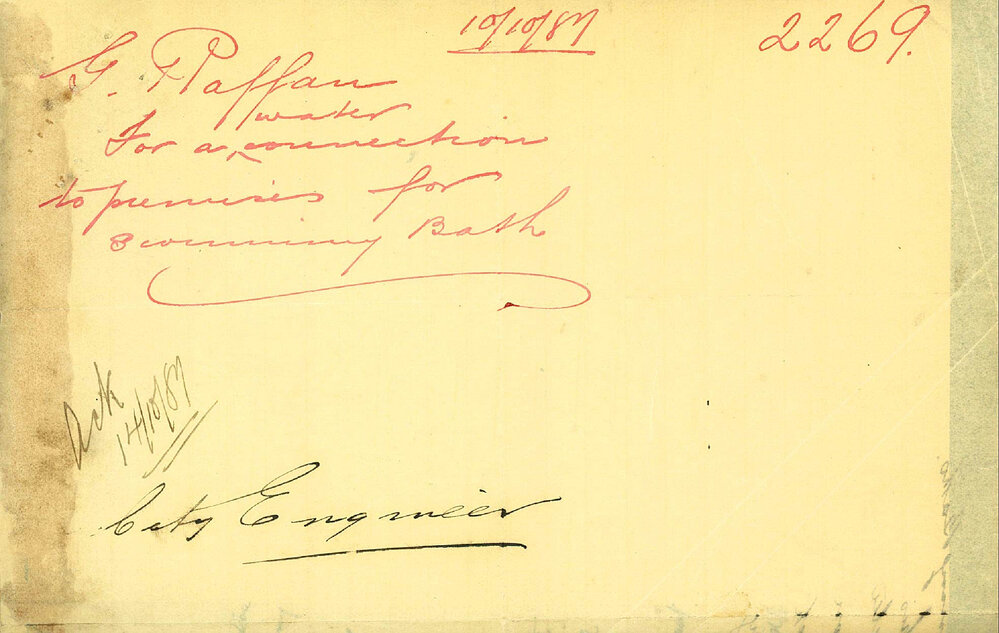 10/10/87
2269.
G. Raffan
water
For a, connection
to premises for
Swimming Bath
Ack
14/10/87
City Engineer